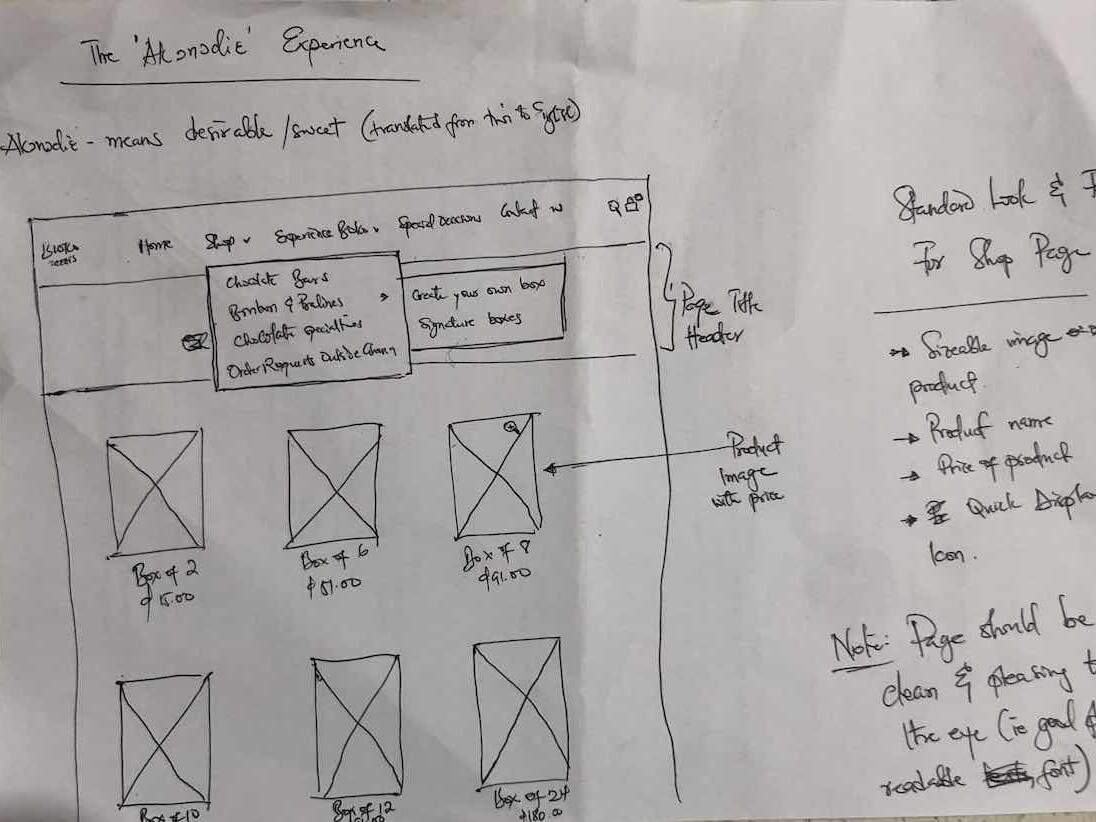 The 'Akonodie' Experience
Akonodie - means desirable / sweet (translated from Twi to English)
Home Shop Experience Boxes Special Occasions Contact us
Chocolate Bars
Bonbon & Pralines
Chocolate specialties
Order Requests Outside Ghana
Create your own box
Signature boxes
Page Title
Header
Product
Image
with price
Box of 2
$15.00
Box of 6
$51.00
Box of 8
$91.00
Box of 10
Box of 12
Box of 24
$180.00
Standard Look &
For Shop Page
Sizeable image
product.
Product name
Price of product
Quick Display
Icon.
Note: Page should be
clean & pleasing
the eye (ie good
readable font)